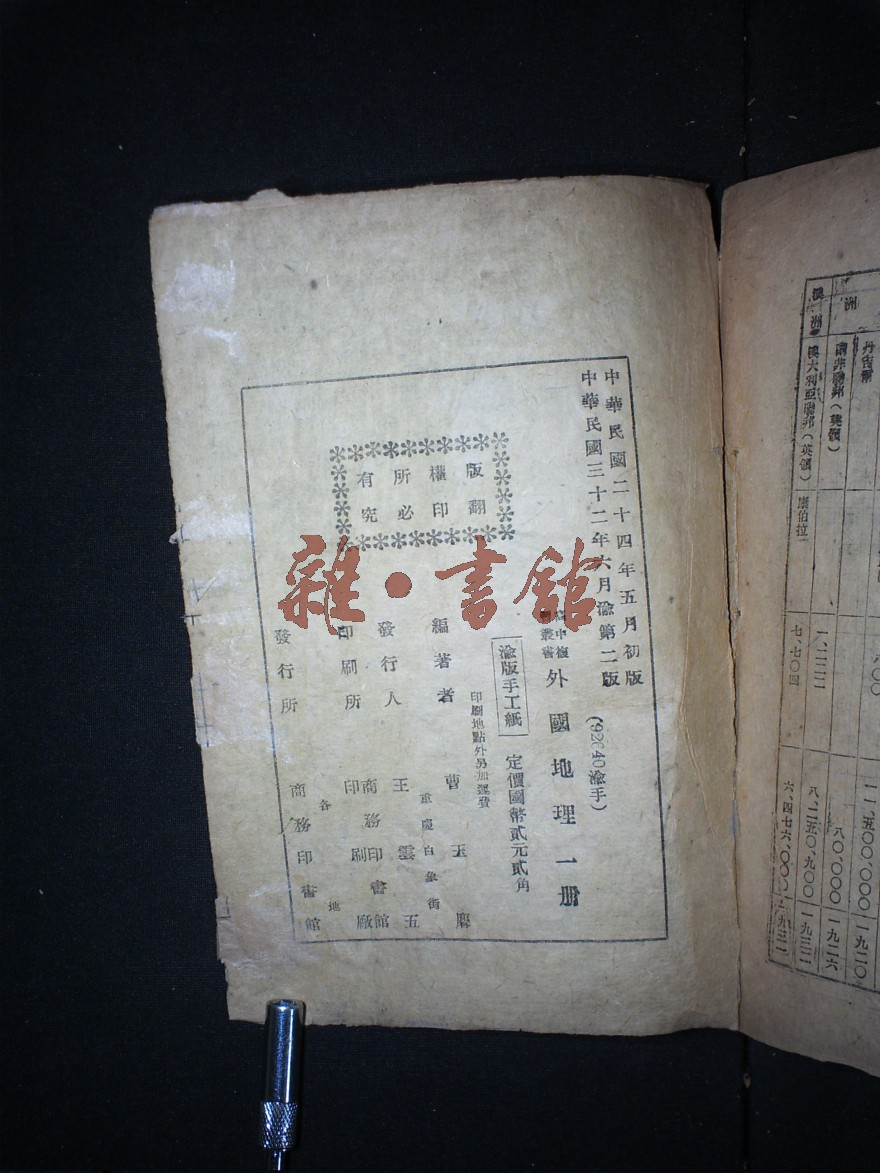 中華民國二十四年五月初版
中華民國三十二年六月渝第二版
(92640渝手)
外國地理一册
渝版手工紙
定價國幣貳元貳角
印刷地點外另加運費
版權所有
翻印必究
編著者
曹玉麐
重慶白象街
發行人
王雲五
印刷所
商務印書館
印刷廠
各地
發行所
商務印書館
雜·書館
丹吉爾
一一、五〇〇、〇〇〇
一九二〇
洲
南非聯邦(英領)
八〇、〇〇〇
一九二六
澳洲
澳大利亞聯邦(英領)
康伯拉
七、七〇四
六、四七六、〇〇〇